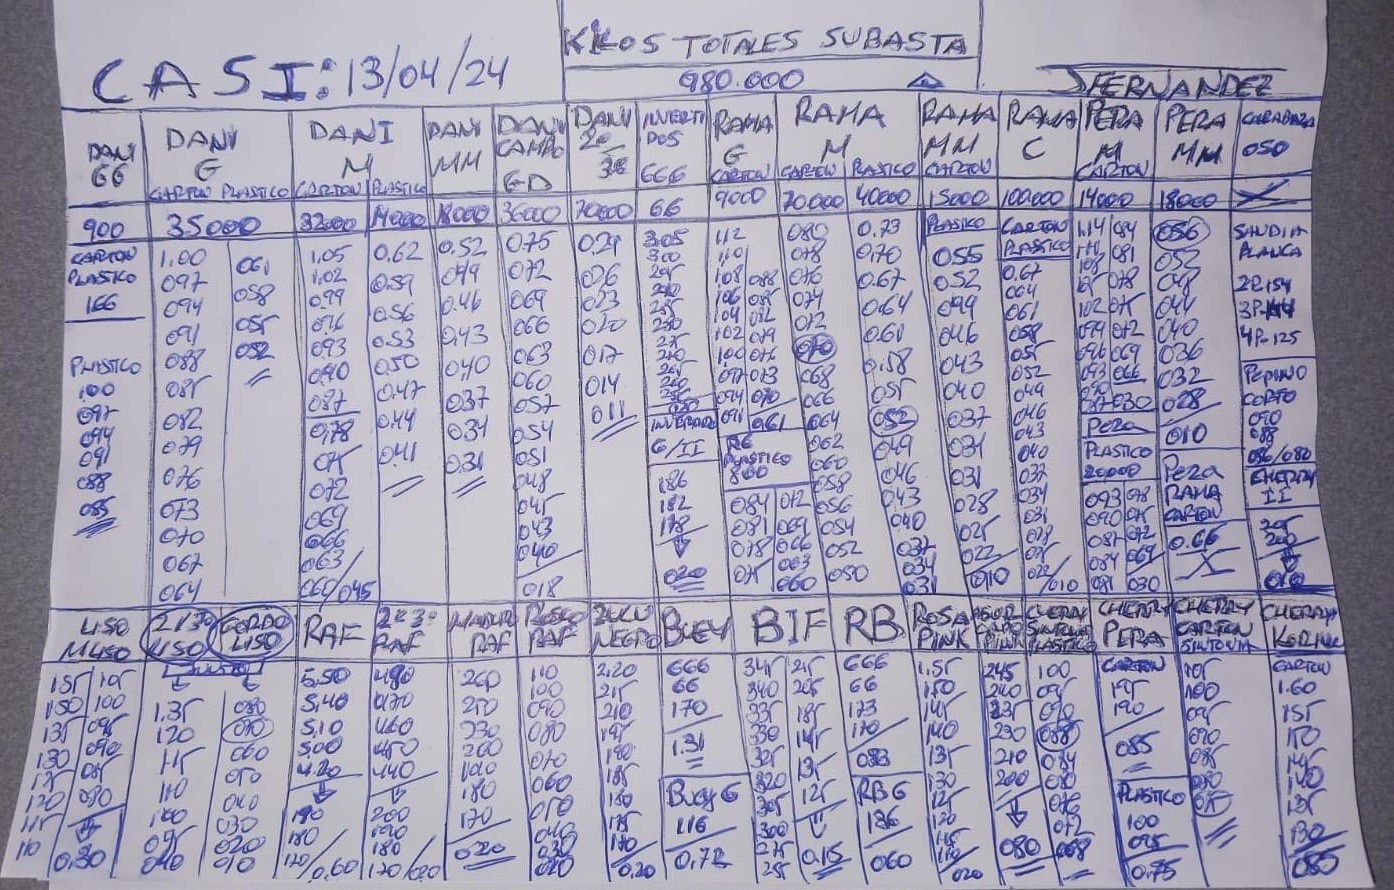 KILOS TOTALES SUBASTA
CASI: 13/04/24
980.000
JFERNANDEZ
DANI GG
DANI G
CARTON PLASTICO
DANI M
CARTON PLASTICO
DANI MM
DANI CAMPO GD
DANI 2º/3º
INVERTIDOS 666
RAMA G CARTON
RAMA M
CARTON PLASTICO
RAMA MM CARTON
RAMA C
PERA M CARTON
PERA MM
CALABAZA 050
900 35000 32000 14000 18000 36000 20000 66 9000 70000 40000 15000 100000 14000 18000
CARTON
PLASTICO
166
PLASTICO
100
097
094
091
088
085
1.00
097
094
091
088
085
082
079
076
073
070
067
064
061
058
055
052
1.05
1.02
099
096
093
090
087
078
075
072
069
066
063
060/045
0.62
059
0.56
0.53
0.50
0.47
044
041
0.52
049
0.46
0.43
040
037
034
0.31
0.75
072
069
066
063
060
057
054
051
048
045
043
040
018
0.29
026
023
020
017
014
011
305
300
INVERTIDO
G/II
186
182
178
020
112
110
108 088
106 085
104 082
102 079
100 076
097 073
094 070
091 061
RG
PLASTICO
800
084 072
081 069
078 066
075 063
060
080
078
076
074
072
070
068
066
064
062
060
058
056
054
052
050
0.73
0.70
0.67
0.64
0.61
0.58
055
052
049
046
043
040
037
034
031
PLASICO
055
052
049
046
043
040
037
034
031
028
025
022
010
CARTON
PLASTICO
0.67
064
061
058
055
052
049
046
043
040
037
034
031
028
025
022/010
114 084
111 081
108 078
105 075
102 072
099 069
096 066
093
090
087 030
PERA
PLASTICO
20000
093 078
090 075
087 072
084 069
081 030
056
052
048
044
040
036
032
028
010
PERA
RAMA
CARTON
0.66
SANDIA
BLANCA
2P.154
3P.144
4P.125
PEPINO
CORTO
090
088
086/080
CHERRY
II
205
200
010
LISO M
155 105
150 100
135 095
130 090
125 085
120 080
115
110 0.30
2º/3º LISO
1.35
120
115
110
100
095
040
GORDO LISO
080
070
060
050
040
030
020
010
RAF
5.50
5.40
5.10
500
4.20
190
180
170/0.60
2º 3º RAF
490
470
460
450
440
200
190
180
MADURO RAF
260
250
230
200
190
180
170
020
RAF
110
100
090
080
070
060
050
040
030
020
ZULU NEGRO
2.20
215
210
195
190
185
180
175
170
0.20
BUEY
666
66
170
1.31
BUEY G
116
0.72
BIF
345 215
340 205
335 185
330 145
325 135
320 125
305
300 0.15
275
25
RB
666
66
173
170
083
RBG
136
060
ROSA PINK
1.55
150
145
140
135
130
125
120
115
110
020
PINK
245
240
235
230
210
200
080
CHERRY SINTONIA PLASTICO
100
095
090
088
084
080
076
072
068
CHERRY PERA
CARTON
195
190
085
PLASTICO
100
095
0.75
CHERRY CARTON SINTONIA
105
100
095
090
085
080
075
CHERRY
CARTON
1.60
155
150
145
140
135
130
080